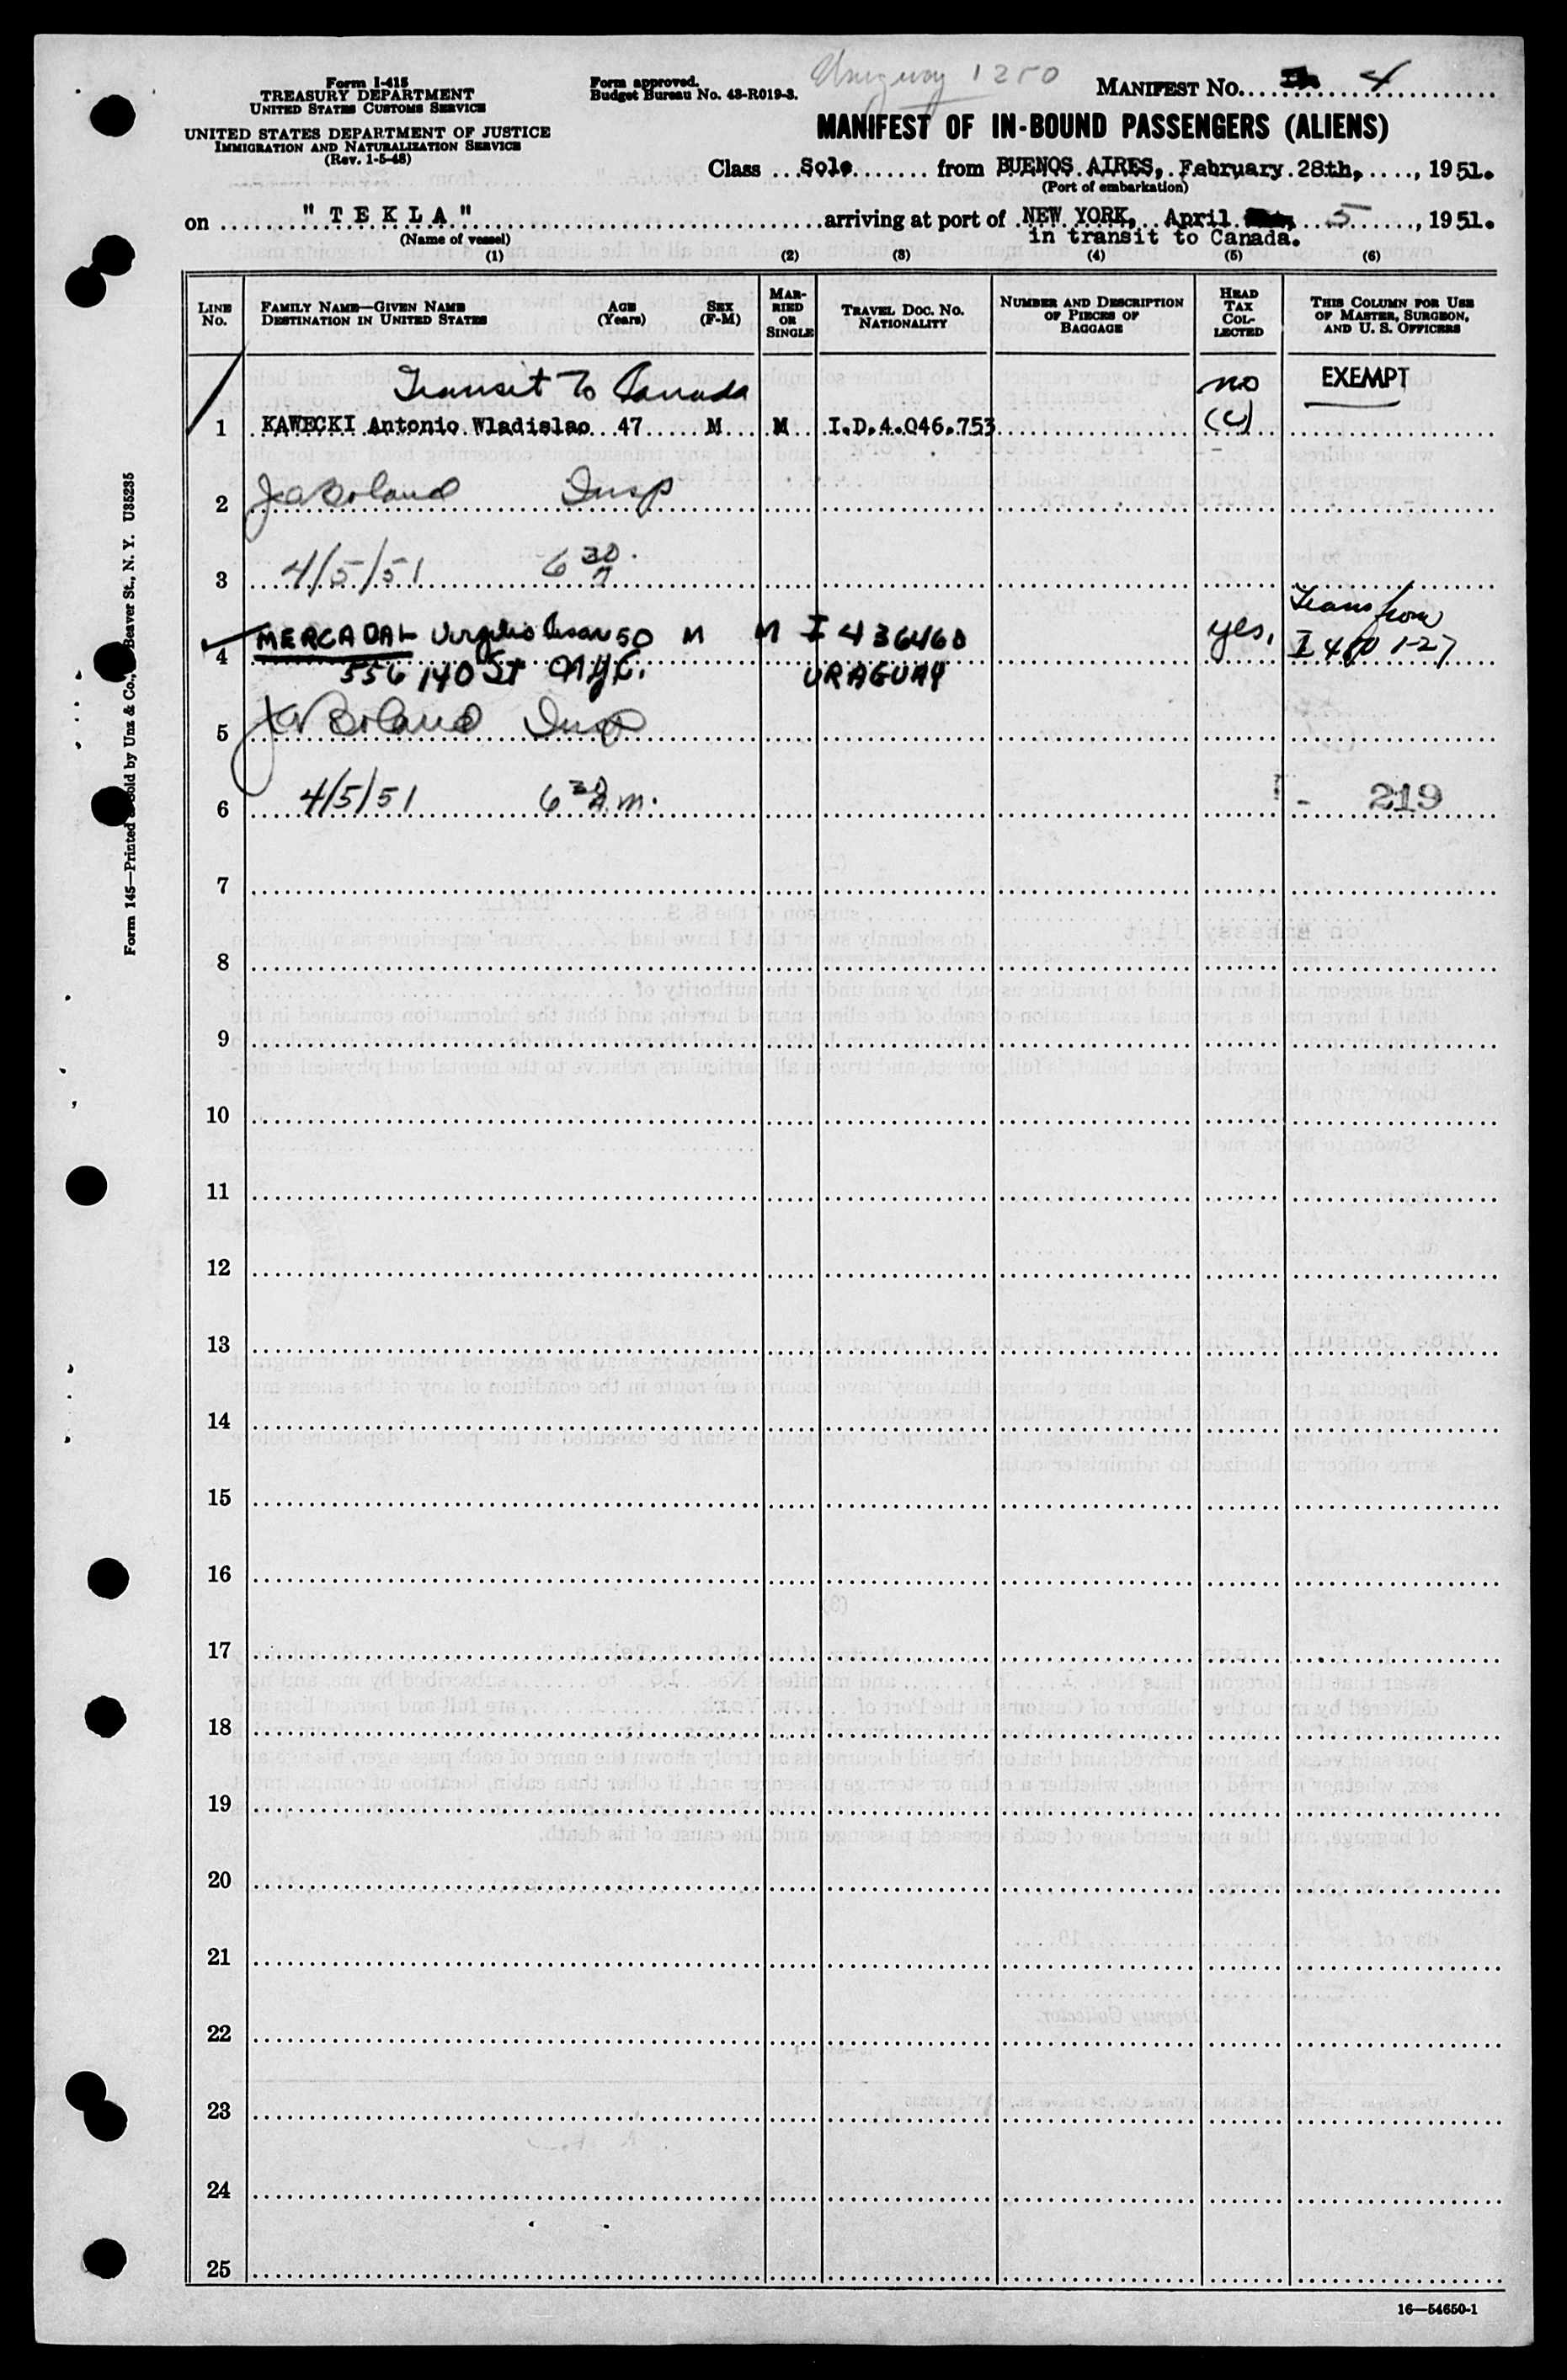 Form I-415
TREASURY DEPARTMENT
UNITED STATES CUSTOMS SERVICE
UNITED STATES DEPARTMENT OF JUSTICE
IMMIGRATION AND NATURALIZATION SERVICE
(Rev. 1-5-48)
Form approved.
Budget Bureau No. 43-R019-3.
Uruguay 1250
MANIFEST NO. 4
MANIFEST OF IN-BOUND PASSENGERS (ALIENS)
Class Sole from BUENOS AIRES, February 28th, 1951.
(Port of embarkation)
on "TEKLA" arriving at port of NEW YORK, April 5, 1951.
(Name of vessel) in transit to Canada.
(1) (2) (3) (4) (5) (6)
LINE NO.
FAMILY NAME—GIVEN NAME
DESTINATION IN UNITED STATES
AGE (Years)
SEX (F-M)
MARRIED OR SINGLE
TRAVEL DOC. NO.
NATIONALITY
NUMBER AND DESCRIPTION OF PIECES OF BAGGAGE
HEAD TAX COLLECTED
THIS COLUMN FOR USE OF MASTER, SURGEON, AND U. S. OFFICERS
Transit to Canada no EXEMPT
1 KAWECKI Antonio Wladislao 47 M M I.D.4.046.753 (c)
2 Boland Insp
3 4/5/51 6 30
4 MERCADAL Virgilio Cesar 50 M M I 436460 yes, Trans from
556 140 St NYC. URAGUAY
5 Boland Insp
6 4/5/51 6 30 A.m. - 219
7
8
9
10
11
12
13
14
15
16
17
18
19
20
21
22
23
24
25
16—54650-1
Form 145—Printed & Sold by Unz & Co., Beaver St., N. Y. U35235